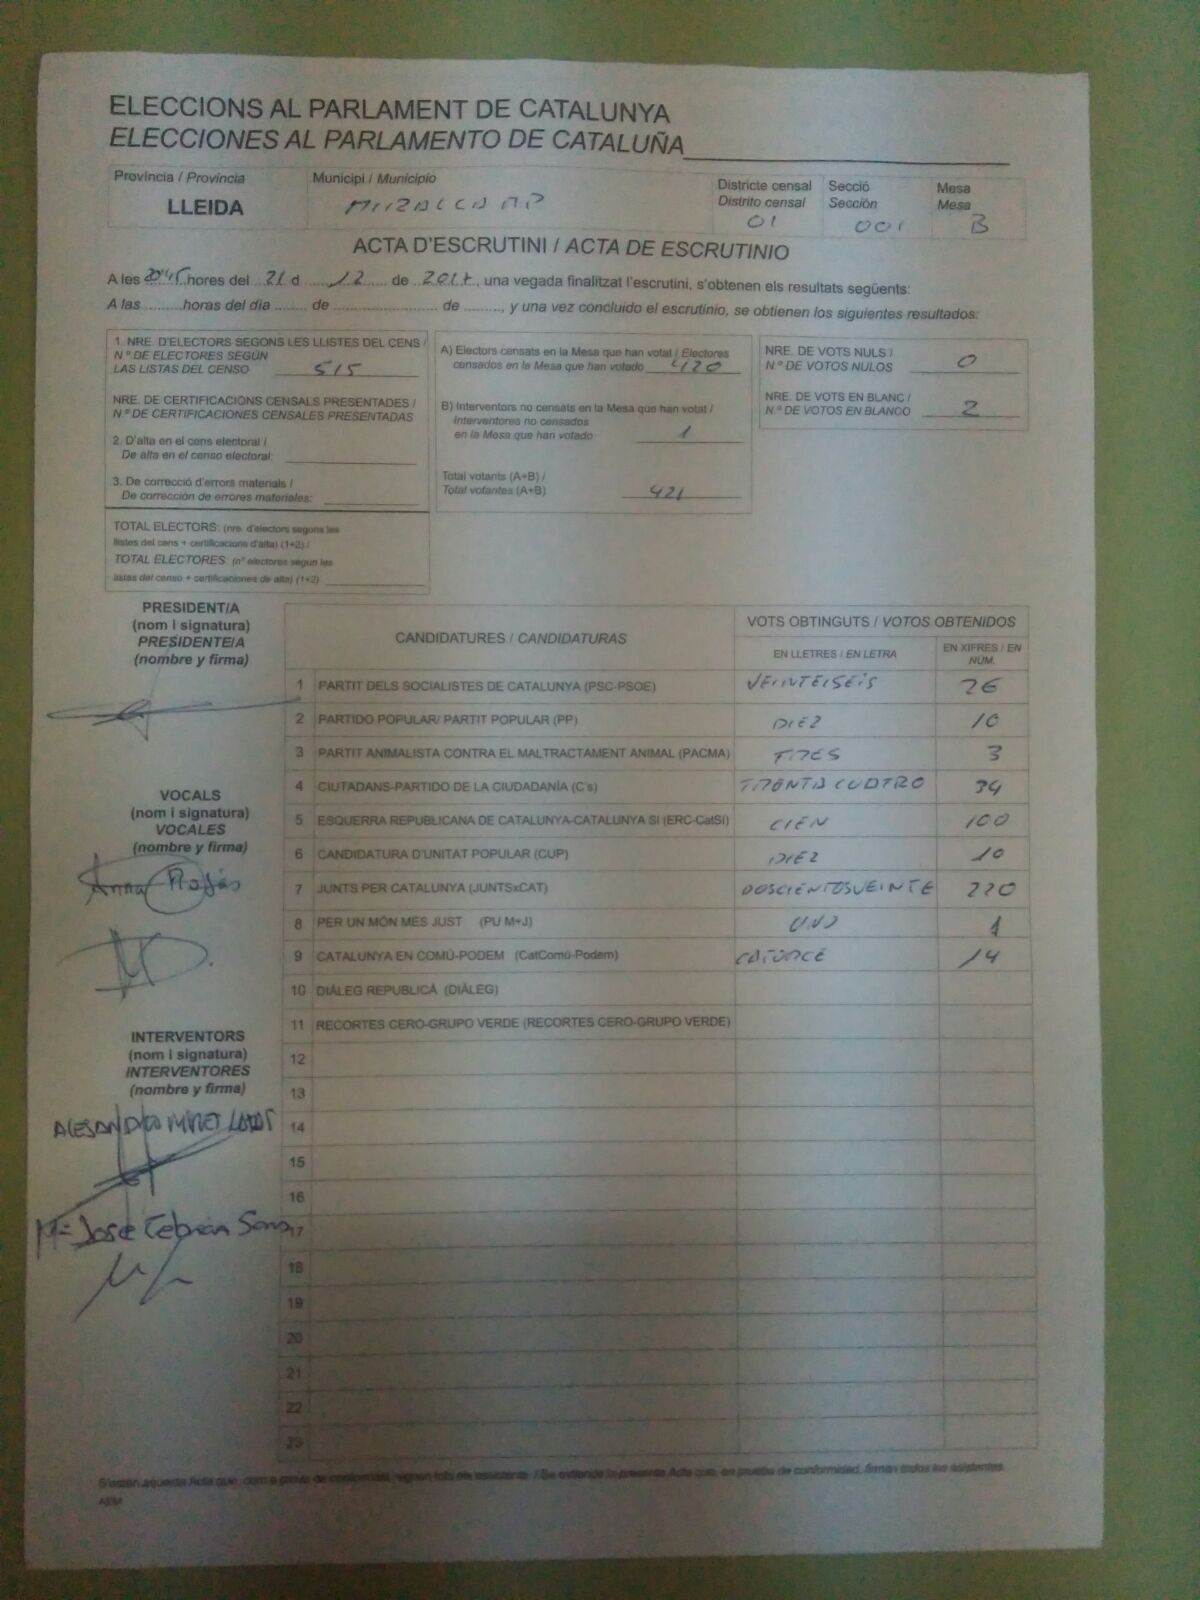 ELECCIONS AL PARLAMENT DE CATALUNYA
ELECCIONES AL PARLAMENTO DE CATALUÑA
Província / Provincia
LLEIDA
Municipi / Municipio
MIRALCAMP
Districte censal
Distrito censal
01
Secció
Sección
001
Mesa
Mesa
B
ACTA D'ESCRUTINI / ACTA DE ESCRUTINIO
A les 20'45 hores del 21 d 12 de 2017, una vegada finalitzat l'escrutini, s'obtenen els resultats següents:
A las ......... horas del día ....... de ...................... de ........, y una vez concluido el escrutinio, se obtienen los siguientes resultados:
1. NRE. D'ELECTORS SEGONS LES LLISTES DEL CENS /
N.º DE ELECTORES SEGÚN
LAS LISTAS DEL CENSO 515
NRE. DE CERTIFICACIONS CENSALS PRESENTADES /
N.º DE CERTIFICACIONES CENSALES PRESENTADAS
2. D'alta en el cens electoral /
De alta en el censo electoral:
3. De correcció d'errors materials /
De corrección de errores materiales:
TOTAL ELECTORS: (nre. d'electors segons les
llistes del cens + certificacions d'alta) (1+2) /
TOTAL ELECTORES: (nº electores según las
listas del censo + certificaciones de alta) (1+2)
A) Electors censats en la Mesa que han votat / Electores
censados en la Mesa que han votado 420
B) Interventors no censats en la Mesa que han votat /
Interventores no censados
en la Mesa que han votado 1
Total votants (A+B) /
Total votantes (A+B) 421
NRE. DE VOTS NULS /
N.º DE VOTOS NULOS 0
NRE. DE VOTS EN BLANC /
N.º DE VOTOS EN BLANCO 2
PRESIDENT/A
(nom i signatura)
PRESIDENTE/A
(nombre y firma)
VOCALS
(nom i signatura)
VOCALES
(nombre y firma)
Anna
INTERVENTORS
(nom i signatura)
INTERVENTORES
(nombre y firma)
ALESANDRO
Mª Jose Cebrián
CANDIDATURES / CANDIDATURAS
VOTS OBTINGUTS / VOTOS OBTENIDOS
EN LLETRES / EN LETRA
EN XIFRES / EN NÚM.
1 PARTIT DELS SOCIALISTES DE CATALUNYA (PSC-PSOE) VEINTEISEIS 26
2 PARTIDO POPULAR/ PARTIT POPULAR (PP) DIEZ 10
3 PARTIT ANIMALISTA CONTRA EL MALTRACTAMENT ANIMAL (PACMA) TRES 3
4 CIUTADANS-PARTIDO DE LA CIUDADANÍA (C's) TRENTA CUATRO 34
5 ESQUERRA REPUBLICANA DE CATALUNYA-CATALUNYA SÍ (ERC-CatSí) CIEN 100
6 CANDIDATURA D'UNITAT POPULAR (CUP) DIEZ 10
7 JUNTS PER CATALUNYA (JUNTSxCAT) DOSCIENTOSVEINTE 220
8 PER UN MÓN MÉS JUST (PU M+J) UNO 1
9 CATALUNYA EN COMÚ-PODEM (CatComú-Podem) CATORCE 14
10 DIÀLEG REPUBLICÀ (DIÀLEG)
11 RECORTES CERO-GRUPO VERDE (RECORTES CERO-GRUPO VERDE)
12
13
14
15
16
17
18
19
20
21
22
23
S'estén aquesta Acta que, com a prova de conformitat, signen tots els assistents. / Se extiende la presente Acta que, en prueba de conformidad, firman todos los asistentes.